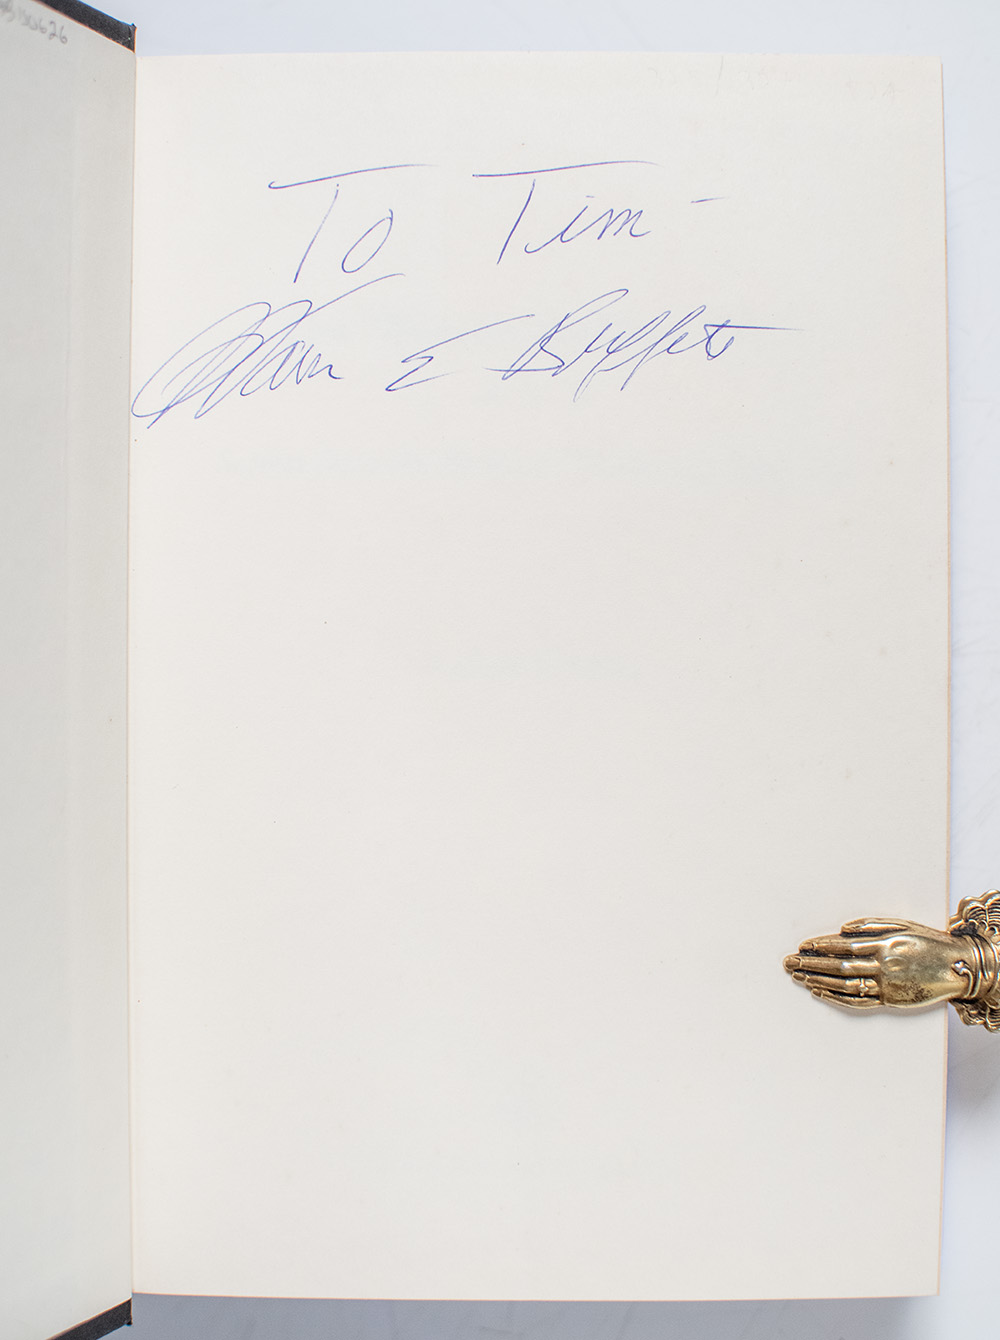 To Tim -
Warren E Buffett